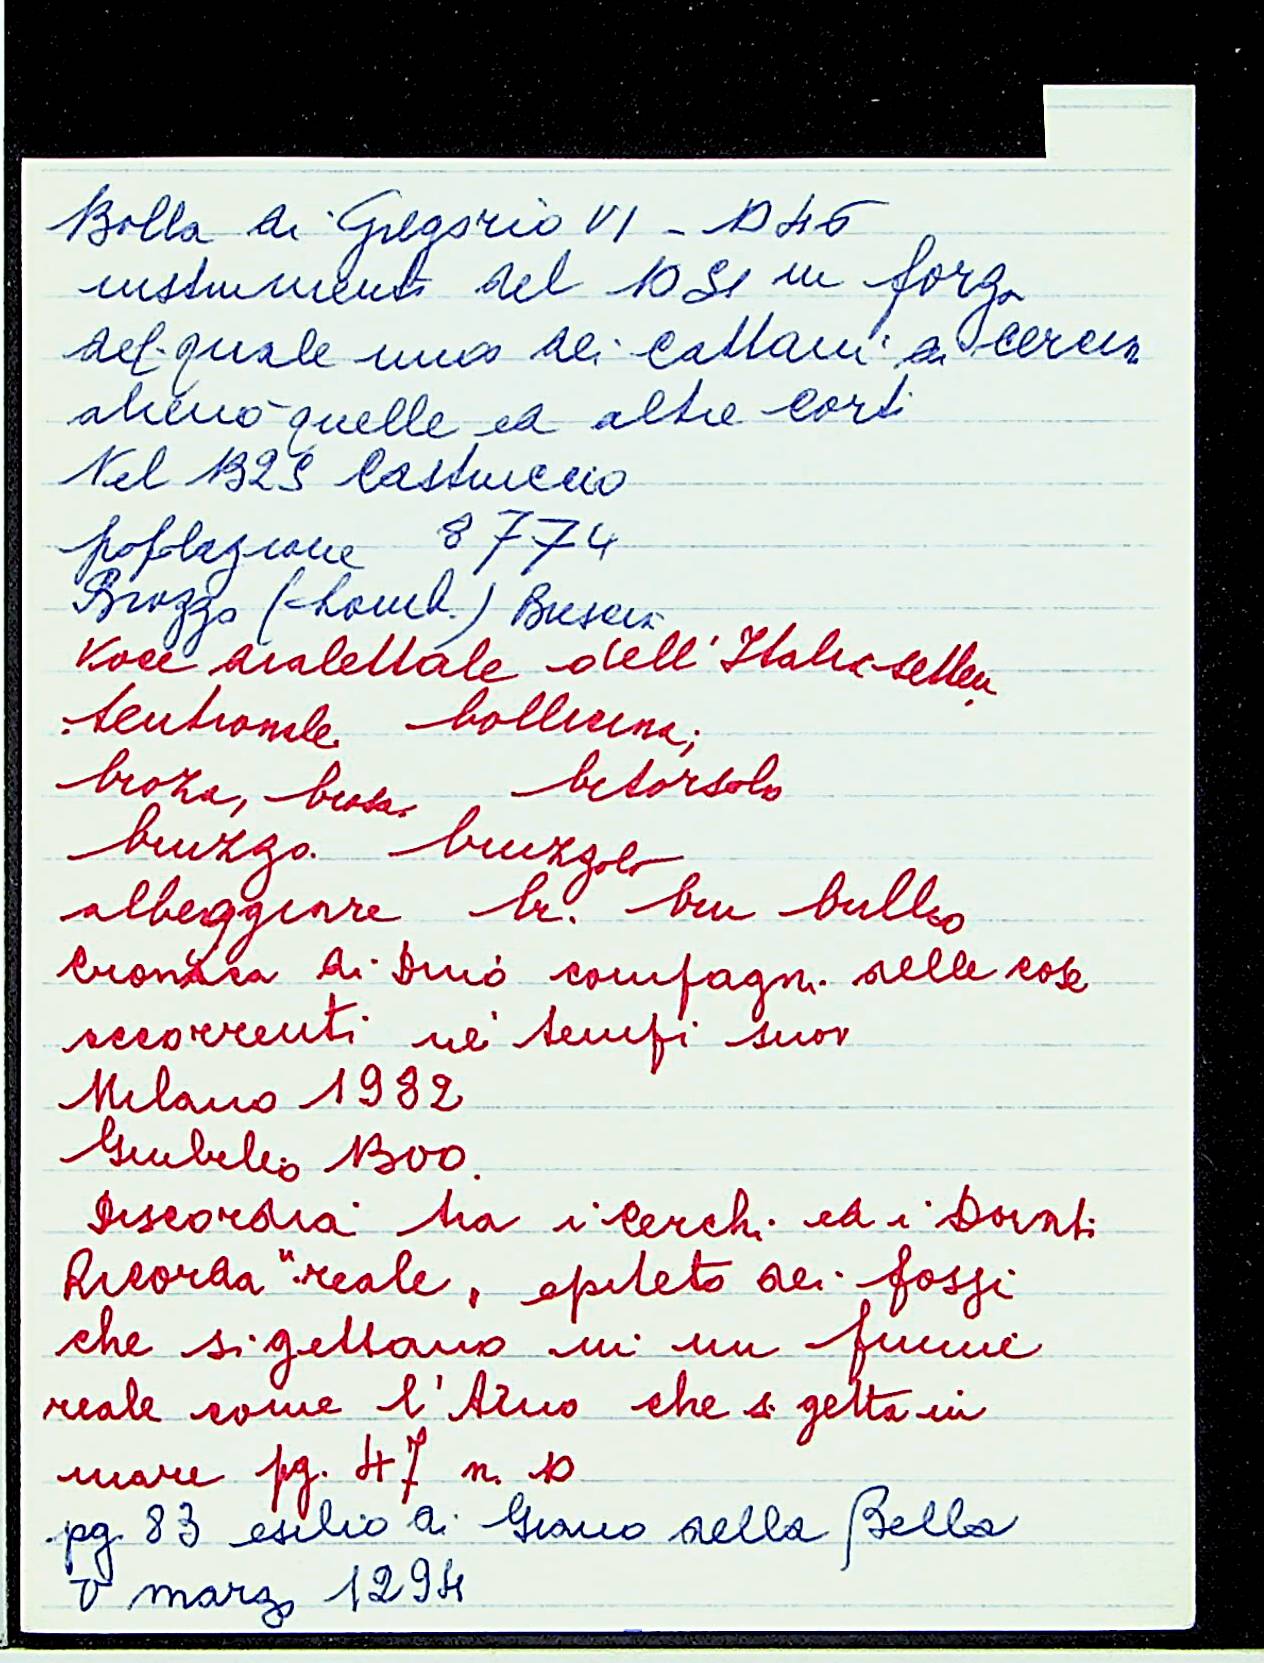 Bolla di Gregorio VI - 1046
instrumenti del 1051 in forza
del quale uno dei cattani di Cercina
alienò quelle ed altre corti
Nel 1325 Castruccio
popolazione 8774
Brozzo (Lomb.) Brescia
Voce dialettale dell'Italia setten
tentrionale bollicina;
broza, brosa. bitorsolo
bruzzo. bruzzolo
albeggiare br. bru brullo
Cronica di Dino Compagni delle cose
occorrenti né tempi suoi
Milano 1982
Giubileo 1300.
Discordia tra i Cerchi ed i Donati
Ricorda "reale, epiteto dei fossi
che si gettano in un fiume
reale come l'Arno che si getta in
mare pg. 47 n. 10
pg. 83 esilio di Giano della Bella
V marzo 1294